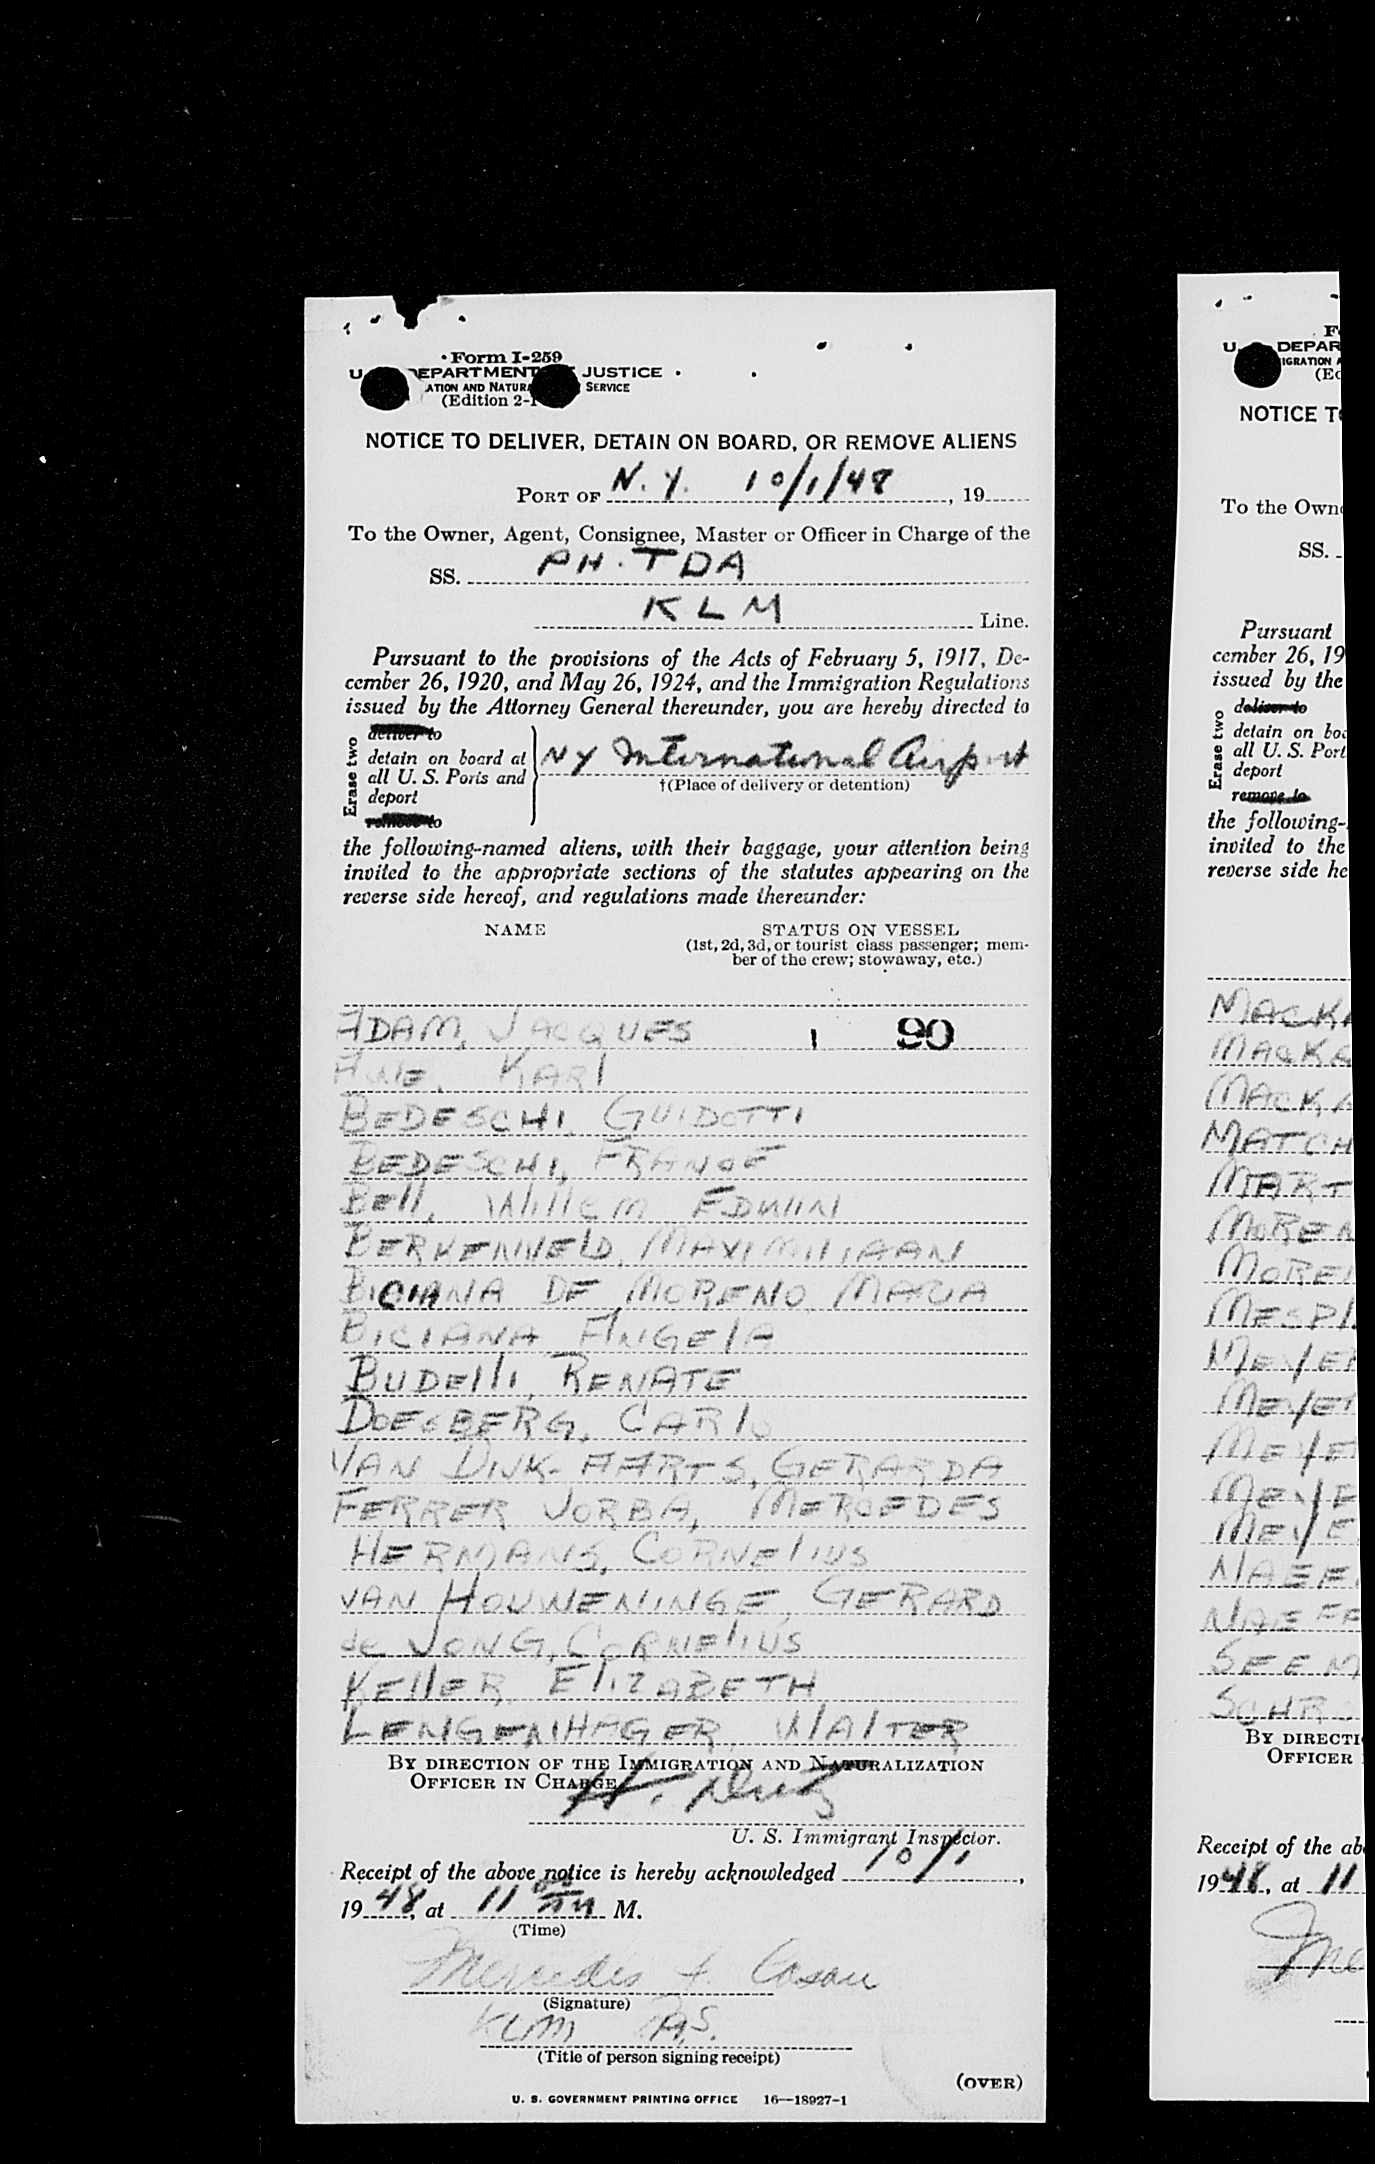 Form I-259
U. DEPARTMENT JUSTICE
ATION AND NATURA SERVICE
(Edition 2-1
NOTICE TO DELIVER, DETAIN ON BOARD, OR REMOVE ALIENS
PORT OF N. Y. 10/1/48, 19
To the Owner, Agent, Consignee, Master or Officer in Charge of the
SS. PH. TDA
KLM Line.
Pursuant to the provisions of the Acts of February 5, 1917, De-
cember 26, 1920, and May 26, 1924, and the Immigration Regulations
issued by the Attorney General thereunder, you are hereby directed to
Erase two
deliver to
detain on board at
all U. S. Ports and
deport
remove to
NY International Airport
†(Place of delivery or detention)
the following-named aliens, with their baggage, your attention being
invited to the appropriate sections of the statutes appearing on the
reverse side hereof, and regulations made thereunder:
NAME STATUS ON VESSEL
(1st, 2d, 3d, or tourist class passenger; mem-
ber of the crew; stowaway, etc.)
ADAM, JACQUES 1 90
KARl
BEDESCHI, GUIDOTTI
BEDESCHI,
BEll, WIllEM EDWIN
BERKENVELD, MAXIMILIAAN
BICIANA DE MORENO MARIA
BICIANA ANGElA
BUDElli, RENATE
DOESBERG, CARlo
VAN DIJK-AARTS, GERARDA
FERRER JORBA, MERCEDES
HERMANS, CORNElIUS
VAN HOUWENINGE, GERARD
de JONG, CORNElIUS
KEllER ElIZABETH
LENGENHAGER, WAlTER
BY DIRECTION OF THE IMMIGRATION AND NATURALIZATION
OFFICER IN CHARGE
H.
U. S. Immigrant Inspector.
Receipt of the above notice is hereby acknowledged 10/1,
1948, at 11 M.
(Time)
Mercedes F. Casau
(Signature)
KLM
(Title of person signing receipt)
(OVER)
U. S. GOVERNMENT PRINTING OFFICE 16—18927-1
F
U. DEPAR
IGRATION
(Ed
NOTICE T
To the Own
SS.
Pursuant
cember 26, 19
issued by the
Erase two
deliver to
detain on boa
all U. S. Port
deport
remove to
the following-
invited to the
reverse side he
MACK
MACKA
MACKA
MATCH
MART
MOREN
MORE
MESPI
MEYE
MEYE
MEYE
MEYE
MEYE
NAEF
NAEFF
SEEM
SCHR
BY DIRECTI
OFFICER
Receipt of the ab
1948, at 11
Me